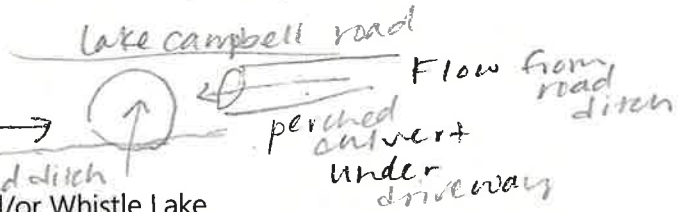 lake campbell road
Flow from
road
ditch
perched
culvert
under
driveway
ditch
/or Whistle Lake